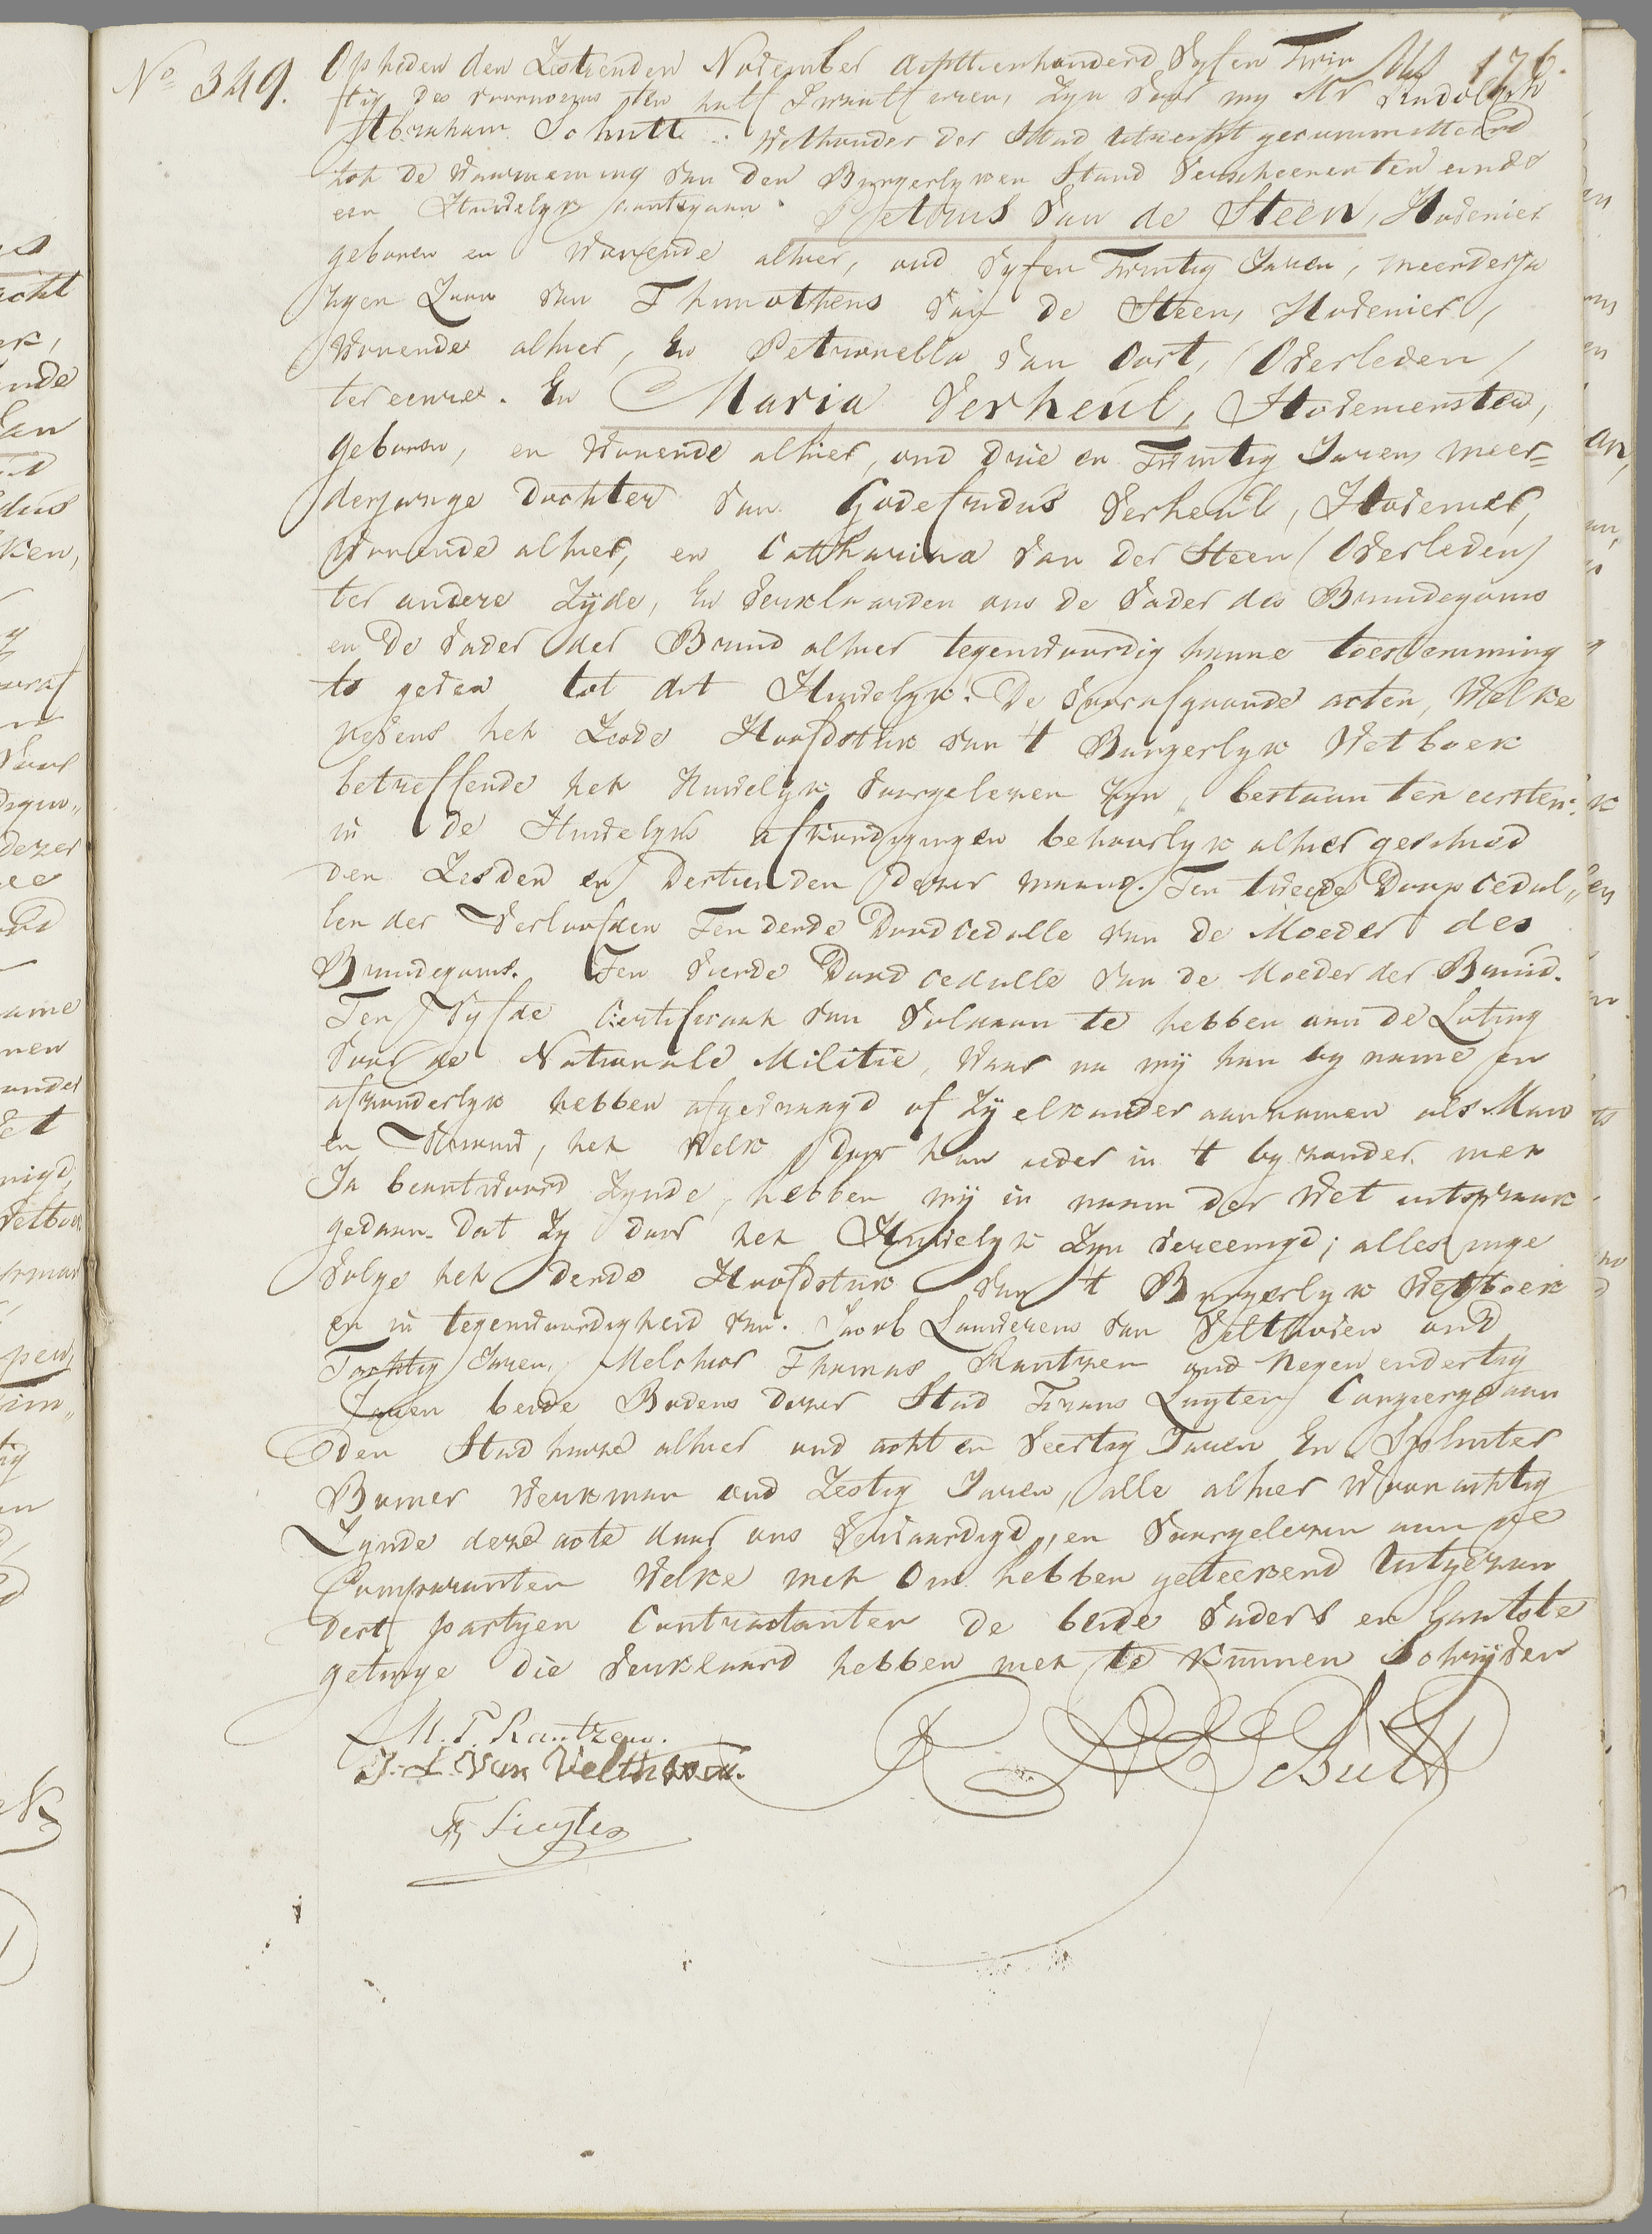 No 349.
176.
Op heden den Zestienden November achttienhonderd Vyf en Twin
tig des voormiddags ten half Twaalf uuren, Zyn voor my Mr Rudolph
Abraham Schutte. Wethouder der Stad Utrecht gecommitteerd
tot de waarneming van den Burgerlyken Stand Verscheenen ten einde
een Huwelyk aantegaan. Petrus van de Steen, Hovenier
geboren en Wonende alhier, oud vyf en Twintig Jaren, meerderja
rigen Zoon van Thimotheus van de Steen, Hovenier,
Wonende alhier, En Petronella van Oort, (Overleden)
ter eenre. En Maria Verheul, Hovenierster,
geboren, en Wonende alhier, oud drie en Twintig Jaren, meer=
derjarige Dochter van Godefridus Verheul, Hovenier,
Wonende alhier, en Catharina van der Steen (Overleden)
ter andere Zyde, En verklaarden ons de Vader des Bruidegoms
en De Vader der Bruid alhier tegenwoordig hunne toestemming
te geven tot dit Huwelyk. De voorafgaande acten, Welke
nevens het Zesde Hoofdstuk van 't Burgerlyk Wetboek
betreffende het Huwelyk voorgelezen zyn, bestaan ten eersten:
in de Huwelyks afkondigingen behoorlyk alhier geschied
den Zesden en Dertienden dezer maand. Ten tweede Doopcedul„
len der Verloofden Ten derde Doodcedulle van de Moeder des
Bruidegoms. Ten vierde Doodcedulle van de Moeder der Bruid.
Ten Vyfde Certificaat van Voldaan te hebben aan de Loting
voor de Nationale Militie, Waar na wij hun by name en
afzonderlyk hebben afgevraagd of Zij elkander aannamen als Man
en Vrouw, het Welk door hun ieder in 't byzonder met
Ja beantwoord Zynde, hebben wij in naam der Wet uitspraak
gedaan. Dat Zy door het Huwelyk Zyn vereenigd; alles inge
volge het derde Hoofdstuk van 't Burgerlyk Wetboek
en in tegenwoordigheid van. Jacob Lourerens van Velthoven oud
Tachtig Jaren, Melchior Thomas Rantzen oud Negen en dertig
Jaren beide Bodens dezer Stad Frans Luyten Conçierge van
den Stadhuize alhier oud acht en Veertig Jaren En Splinter
Bomer Werkman oud Zestig Jaren, alle alhier Woonachtig
Zynde deze acte door ons vervaardigd, en voorgelezen aan de
Comparanten Welke met Ons hebben geteekend Uitgezon
dert partyen Contractanten de beide Vaders en Laatste
getuige die verklaard hebben niet te kunnen Schrijven
M. T. Rantzen.
J. L. Van Velthoven.
F Luyten
R A Schutt